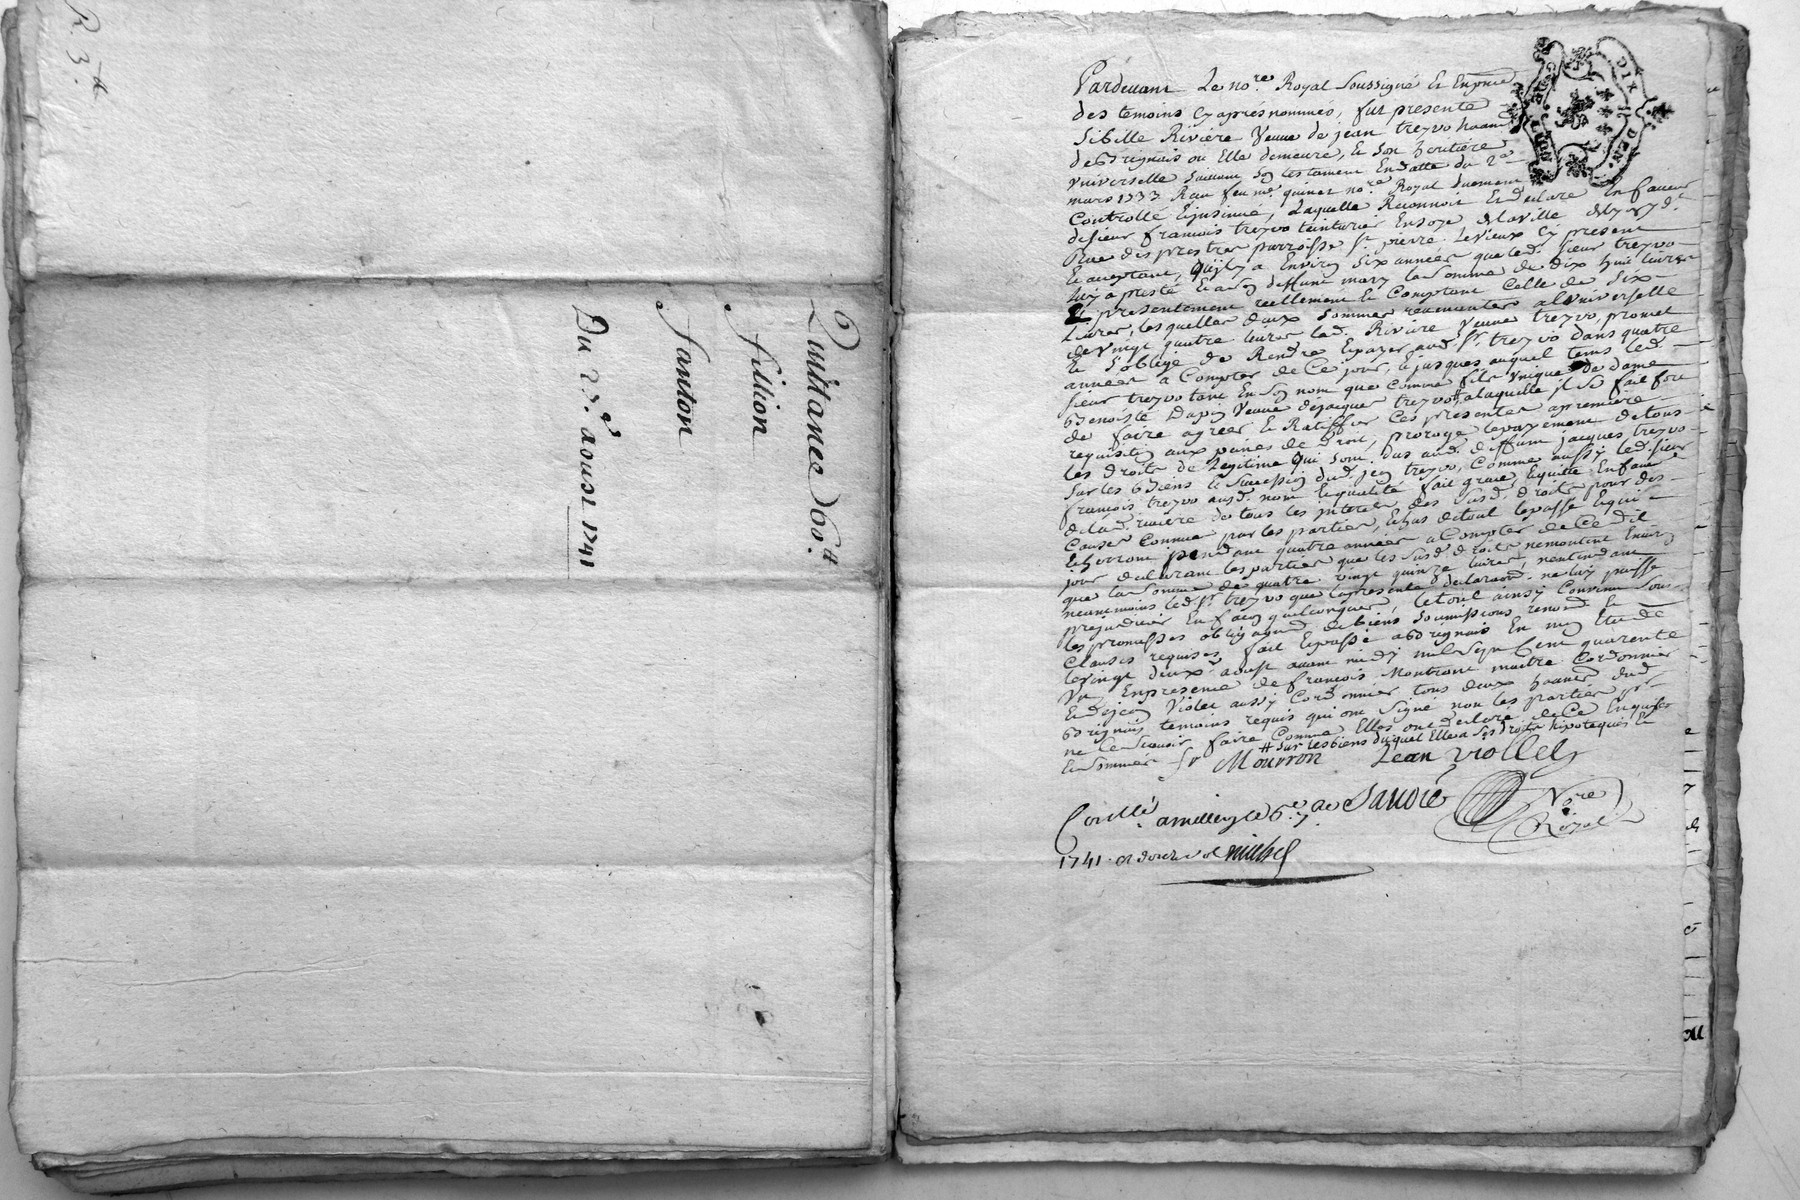 R 3.tt
Quittance d60.tt
fillion
Santon
Du 22.e aoust 1741
GEN. DE LYON
DIX DEN.
Pardevant Le no.re Royal Soussigné Et En pnce
des temoins Cy aprés nommés, fut presente
Sibille Riviere Veuve de jean treyvo habant
de Brignais ou Elle demeure, & son heritiere
Vniverselle suivant son testament En datte du 2e
mars 1733 Reçu feu me. quinet no.re Royal duement
Controllé & jnsinué, Laquelle Reconnoit & declare En faveur
de sieur francois treyvo teinturier En soye de la ville de
Rue des prestres parroisse st. pierre Le Vieux Cy present
Et aceptant, quil y a Environ Six années que led. sieur treyvo
luy a presté & a son deffunt mary la Somme de dix huit livres
& presentement réellement & Comptant Celle de Six
Livres, lesquelles deux sommes revenantes a l'Vniverselle
de Vingt quatre livres lad. Riviere Veuve treyvo, promet
& S'oblige de Rendre & payer aud. Sr. treyvo dans quatre
années a Compter de Ce jour, & jusques auquel tems led.
sieur treyvo tant En son nom que comme fils Vnique de dame
Benoiste Dupin Veuve de jacques treyvo a laquelle il se fait fort
de faire agréer & Ratiffier Ces presentes a premiere
requisition aux peines de Droit, proroge le payement de tous
les droits de Legitime qui sont dus aud. deffunt jacques treyvo
sur les Biens & succession dud. jean treyvo, Comme aussy led. sieur
francois treyvo ausd. nom & qualité fait grace & quitte En faveur
de lad. riviere de tous les jnterets des susd. droits pour des
Causes Connues par les parties, Echus de tout le passé & qui
Echerront pendant quatre années a Compter de Ce dit
jour declarant les parties que les susd. droits ne montent Environ
que la somme de quatre vingt quinze livres, n'entendant
neanmoins led. Sr. treyvo que la presente declaraon. ne luy puisse
prejudicier En façon quelconque, Le tout ainsy Convenu sous
les promesses obligaons. de biens soumissions renonc. &
Clauses requises, fait & passé a Brignais En mon Etude
le Vingt deux aoust avant midy mil Sept Cent quarente
Vn En presence de francois Montront maitre Cordonnier
& de jean Violet aussy Cordonnier tous deux habants dud.
Brignais temoins requis qui ont Signé non les parties pr
ne le scavoir faire Comme Elles ont declaré de Ce Enquises
& sommées
# sur les biens duquel Elle a ses droits hipotequés &
fr Mourron Jean viollet
de Sandre Nre Royal
Conttlé. a millery le 6.e 7.
1741